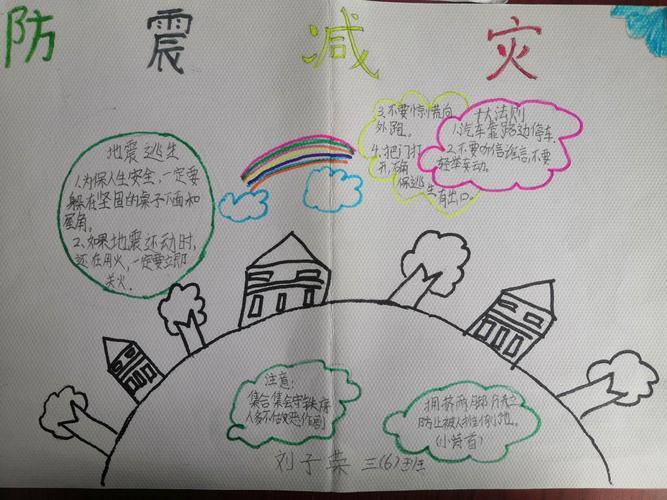 防震减灾
地震逃生
1.为保人生安全,一定要
躲在坚固的桌子下面和
屋角。
2.如果地震还动时,
还在用火,一定要立即
关火.
3.不要惊慌向
外跑。
4.把门打
开,确
保逃生有出口。
十大法则
1.汽车靠路边停车.
2.不要听信谣言,不要
轻举妄动。
注意:
集合集会守秩序
人多不
拥挤两脚
防止被人推倒地。
刘子荣 三(6)班